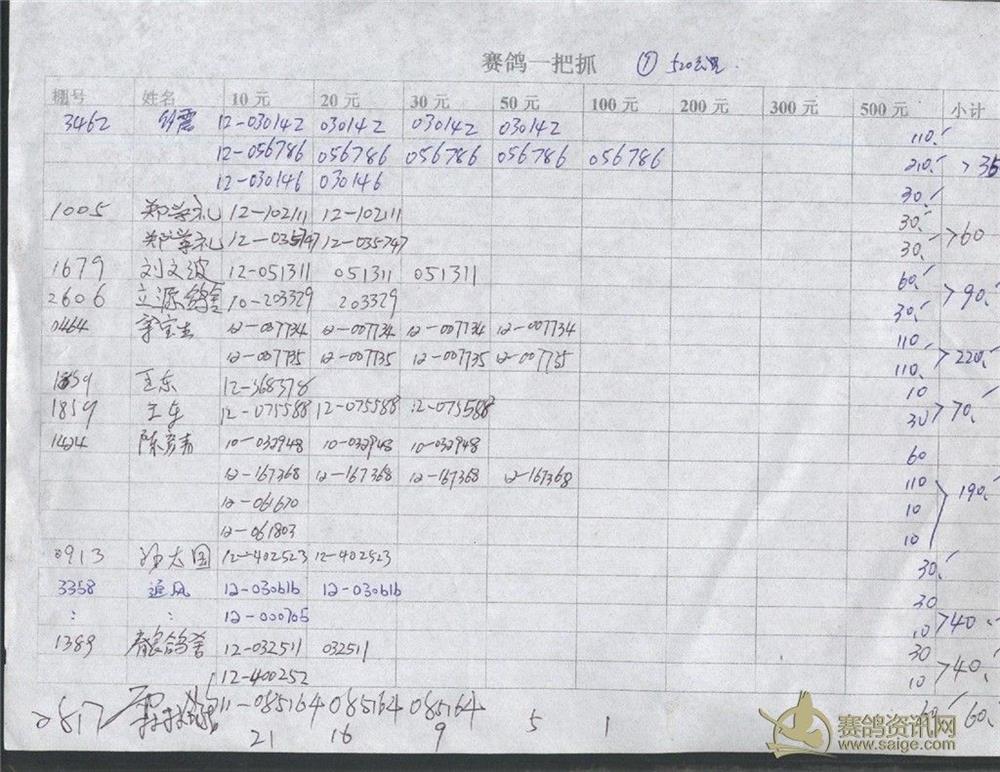 赛鸽一把抓 ① 520公里.
棚号 姓名 10元 20元 30元 50元 100元 200元 300元 500元 小计
3462 12-030142 030142 030142 030142 110.
12-056786 056786 056786 056786 056786 210. >35
12-030146 030146 30.
1005 郑学礼 12-102111 12-102111 30.
郑学礼 12-035747 12-035747 30. >60
1679 刘文波 12-051311 051311 051311 60.
2606 立源鸽舍 10-203329 203329 30. >90.
0464 12-007734 12-007734 12-007734 12-007734 110.
12-007735 12-007735 12-007735 12-007735 110. >220.
1859 王东 12-368378 10
1859 王东 12-075588 12-075588 12-075588 30 >70.
1424 10-032948 10-032948 10-032948 60
12-167368 12-167368 12-167368 12-167368 110 190.
12-061670 10
12-061803 10
0913 孙大国 12-402523 12-402523 30.
3358 追风 12-030616 12-030616 30
: : 12-000705 10 >40.
1389 鸽舍 12-032511 032511 30
12-400252 10 >40.
0817 11-085164 085164 085164 60 60.
21 16 9 5 1
赛鸽资讯网
www.saige.com